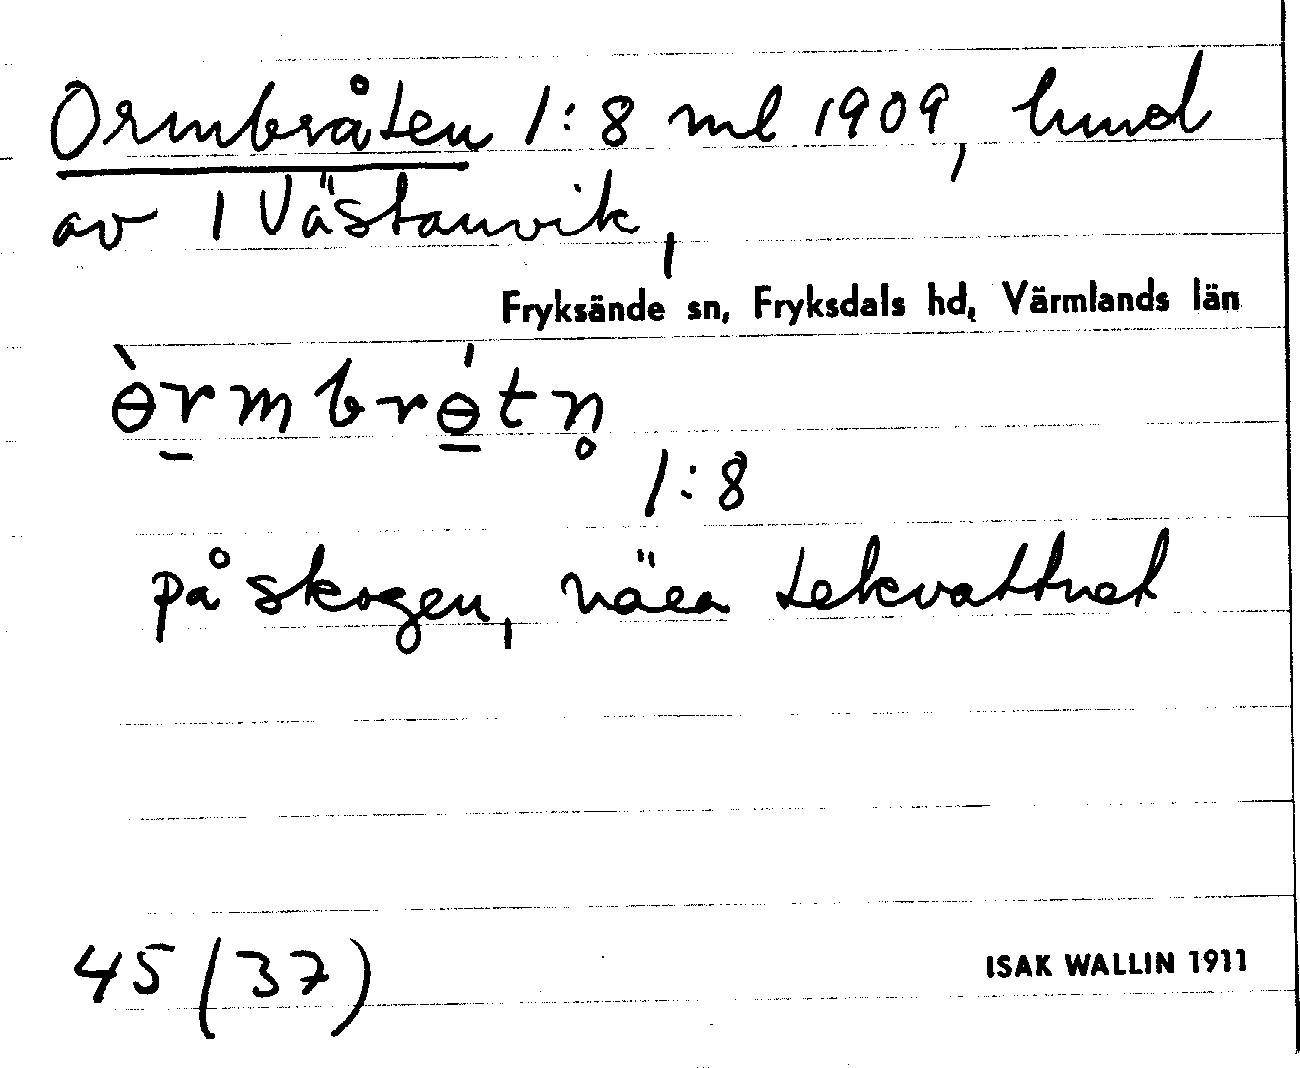 Ormbråten 1:8 ml 1909, lund
av 1 Västanvik,
Fryksände sn, Fryksdals hd, Värmlands län
ɵ̀r̠mbrɵ̠́tn̥
1:8
på skogen, nära Lekvattnet
45 (37)
ISAK WALLIN 1911